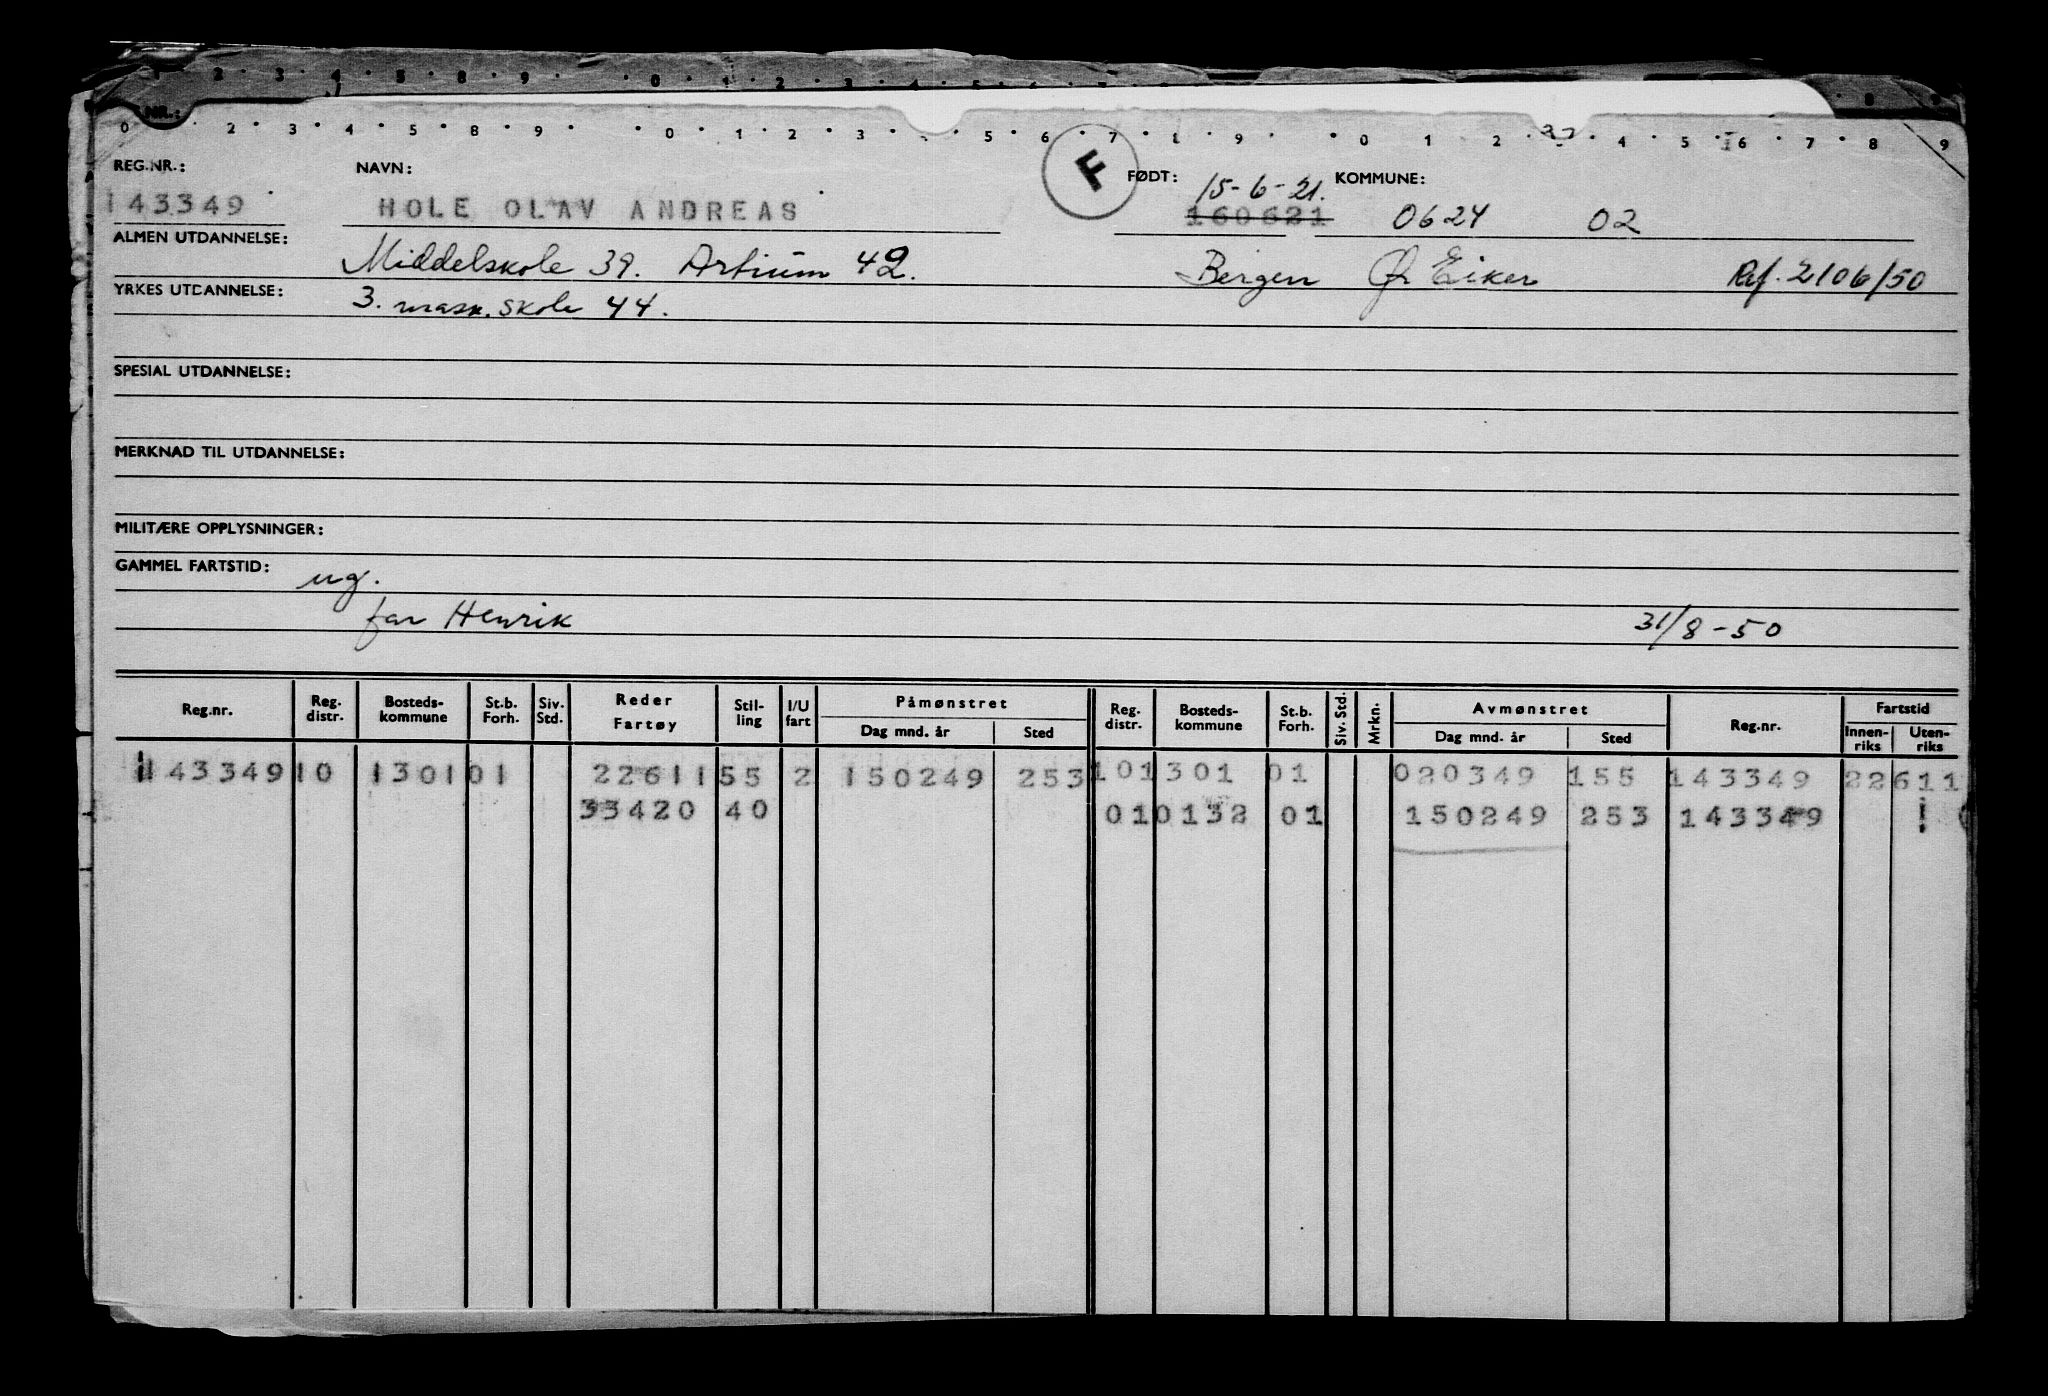 1 2 3 4 5 8 9 0 2 3 4 5 6 7 8
NR.:
0 2 3 4 5 8 9 0 1 2 3 5 6 7 9 0 1 2 4 5 6 7 8 9
REG.NR.: NAVN: F FØDT: 15-6-21. KOMMUNE:
143349 HOLE OLAV ANDREAS 160621 0624 02
ALMEN UTDANNELSE: Middelskole 39. Artium 42. Bergen Ø. Eiker Ref. 2106/50
YRKES UTDANNELSE: 3. mask. skole 44.
SPESIAL UTDANNELSE:
MERKNAD TIL UTDANNELSE:
MILITÆRE OPPLYSNINGER:
GAMMEL FARTSTID: ug.
far Henrik 31/8-50
Reg.nr. Reg. distr. Bosteds-kommune St.b. Forh. Siv. Std. Reder Fartøy Stil-ling I/U fart Påmønstret Dag mnd. år Sted Reg. distr. Bosteds-kommune St.b. Forh. Siv. Std. Mrkn. Avmønstret Dag mnd. år Sted Reg.nr. Fartstid Innen-riks Uten-riks
143349 10 1301 01 22611 55 2 150249 253 10 1301 01 020349 155 143349 22611
33420 40 01 0132 01 150249 253 143349 1